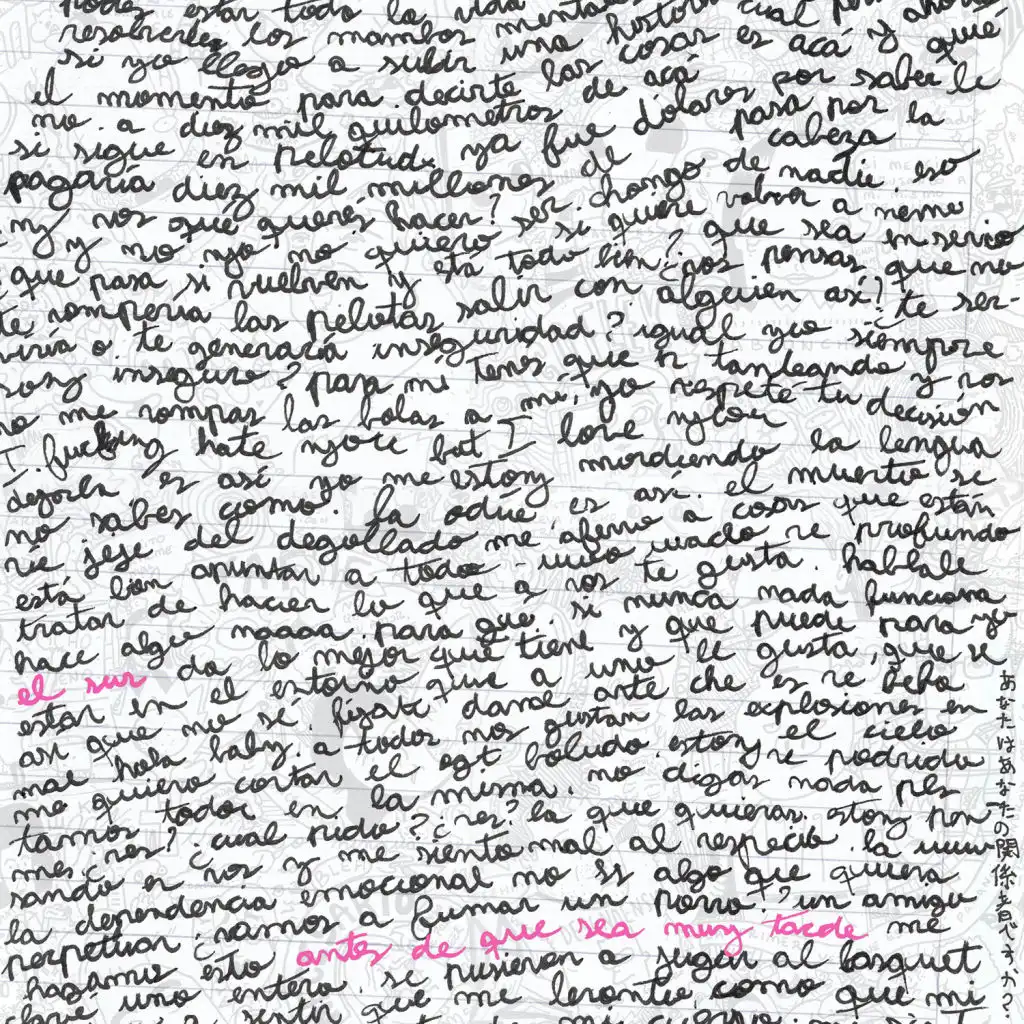 podes estar toda la vida
resolverles los mambos una historia cual
si yo llego a subir las cosas es acá y qué
el momento para decirte de acá por saber le
no. a diez mil quilometros dólares pasa por la
si sigue en pelotud ya fue de cabeza
pagaría diez mil millones chongo de nadie. eso
ny vos qué querés hacer? ser si quiere volver a meme
y no yo no quiero todo bien? que sea en serio
que pasa si vuelven y está ¿vos pensas que no
te romperia las pelotas salir con alguien así? te ser-
viría o te generaría inseguridad? igual yo siempre
soy inseguro? para mi tenes que ir tanteando y vos
no me rompas las bolas a mi, yo respeté tu decisión
I fucking hate you but I love you
dejorla es así yo me estoy mordiendo la lengua
no sabes como. la odié, es así. el muerto se
rie jeje del degollado me aferro a cosas que están
está bien apuntar a todo uuuo uacho re profundo
tratar de hacer lo que a vos te gusta. hablale
hace algo naaaa. para qué. si nunca nada funciona
el sur da lo mejor que tiene y que puede para yo
estar en el entorno que a uno le gusta, que se
asi que no sé. fijate dame ante che es re heho
mal hola baby. a todos nos gustan las explosiones en
me quiero cortar el ogt boludo. estoy re podrido el cielo
tamos todos en la misma. no digas nada pls
mes ¿ves? cual pido? ¿ves? la que quieras. estoy pen
sando en vos y me siento mal al respecto. la uuuu
la dependencia emocional no es algo que quiera
perpetuar. ¿vamos a fumar un porro? un amigo
hagamo esto antes de que sea muy tarde me
clavé uno entero. se pusieron a jugar al basquet
sentir que me levonto, como que mi
あなたはあなたの関係者べすか?